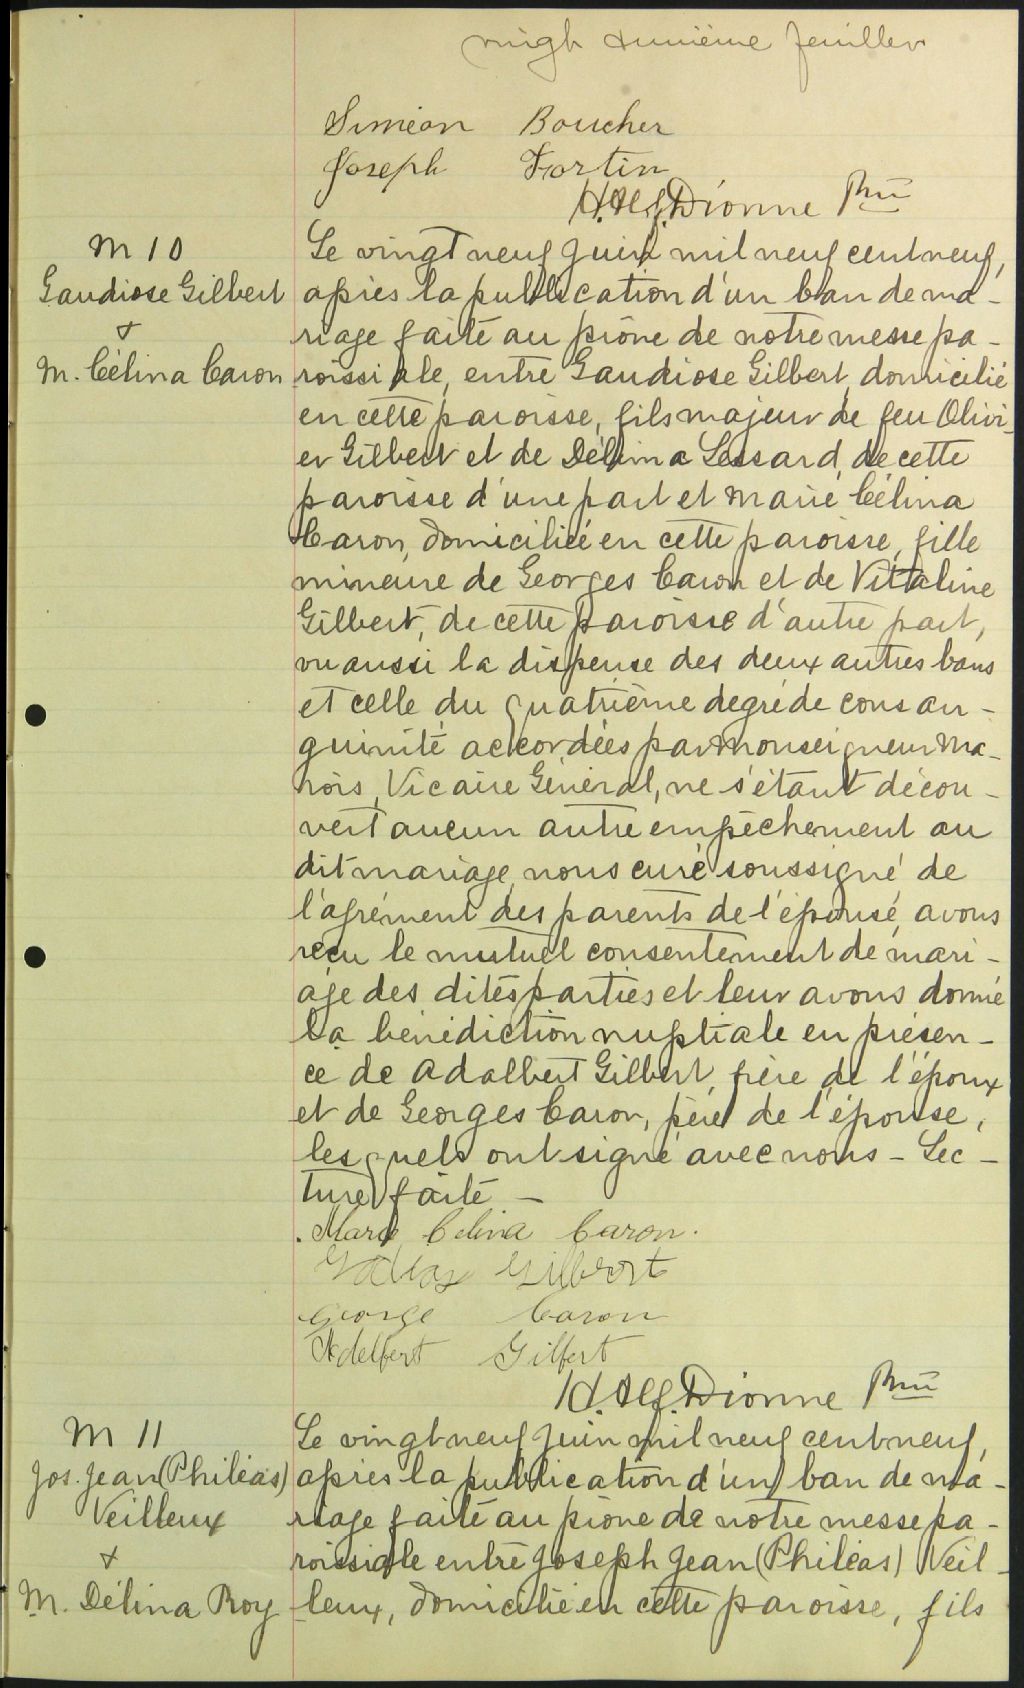 vingt deuxième feuillet
Siméon Boucher
Joseph Fortin
H. Alf. Dionne Ptre
M 10
Gaudiose Gilbert
&
M. Célina Caron
Le vingt neuf juin mil neuf cent neuf,
après la publication d'un ban de ma-
riage faite au prône de notre messe pa-
roissiale, entre Gaudiose Gilbert, domicilié
en cette paroisse, fils majeur de feu Olivi-
er Gilbert et de Délima Lessard, de cette
paroisse d'une part et Marie Célina
Caron, domiciliée en cette paroisse, fille
mineure de Georges Caron et de Vitaline
Gilbert, de cette paroisse d'autre part,
vu aussi la dispense des deux autres bans
et celle du quatrième degré de consan-
guinité accordées par Monseigneur Ma-
rois, Vicaire Général, ne s'étant décou-
vert aucun autre empêchement au
dit mariage, nous curé soussigné de
l'agrément des parents de l'épouse, avons
reçu le mutuel consentement de mari-
age des dites parties et leur avons donné
la bénédiction nuptiale en présen-
ce de Adalbert Gilbert, frère de l'époux
et de Georges Caron, père de l'épouse,
lesquels ont signé avec nous - Lec-
ture faite -
Marie Celina Caron.
Gilbert
George Caron
Adelbert Gilbert
H. Alf. Dionne Ptre
M 11
Jos. Jean (Philéas)
Veilleux
&
M. Délina Roy
Le vingt neuf juin mil neuf cent neuf,
après la publication d'un ban de ma-
riage faite au prône de notre messe pa-
roissiale entre Joseph Jean (Philéas) Veil-
leux, domicilié en cette paroisse, fils